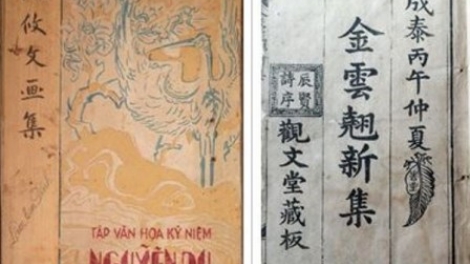 攸文画集
TẬP VĂN HỌA KỶ NIỆM
NGUYỄN DU
成泰丙午仲夏
金雲翹新集
觀文堂藏板